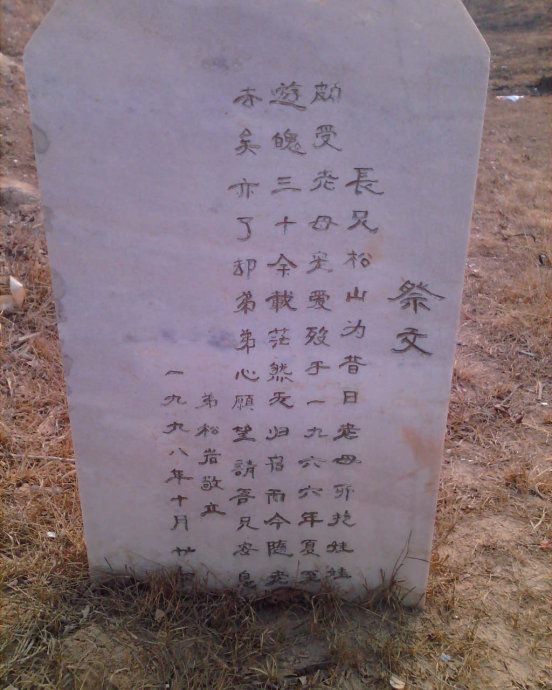 祭文
長兄松山为昔日老母所抱娃娃
颇受老母宠爱殁于一九六六年夏至
遊魄三十余载茫然无归宿而今随
矣亦了却弟弟心願望請吾兄安息
弟松岩敬立
一九九八年十月廿